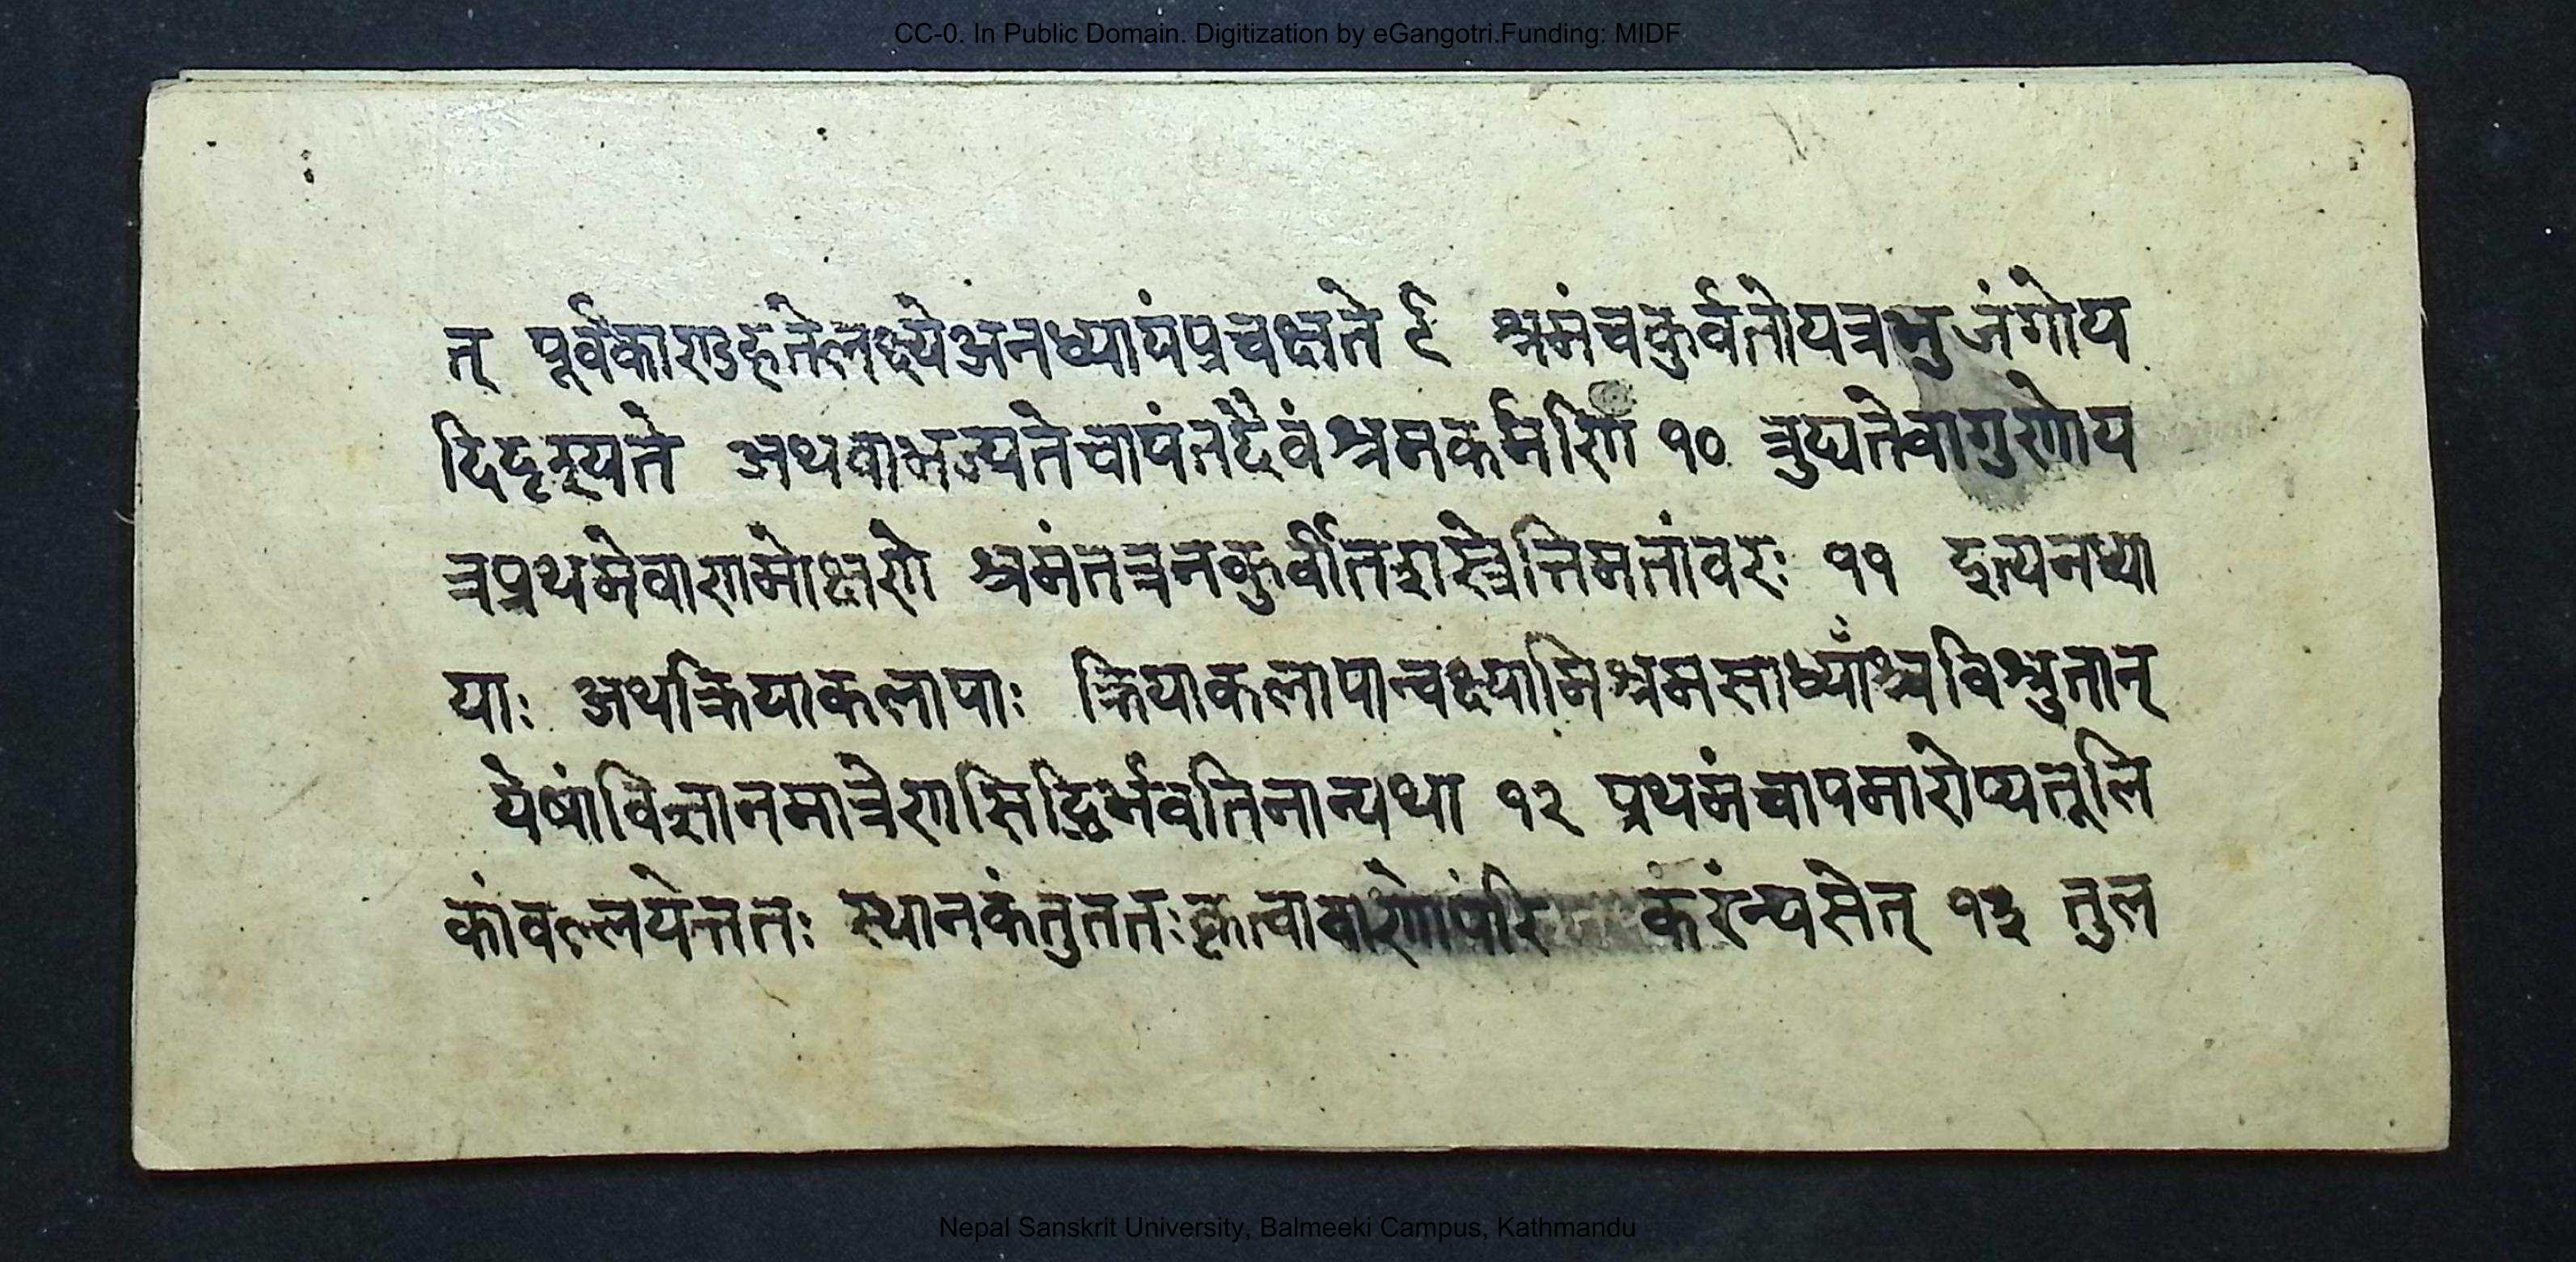 CC-0. In Public Domain. Digitization by eGangotri.Funding: MIDF
त् पूर्वकाराडहतेलक्ष्येअनध्यायंप्रचक्षते ९ श्रमंचकुर्वतोयत्रभुजंगोय
दिदृश्यते अथवाभज्यतेचापंतदैवंश्रमकर्मणि १० त्रुट्यतेवागुणोय
त्रप्रथमेवाणमोक्षणे श्रमंतत्रनकुर्वीतशास्त्रेत्तिमतांवरः ११ इत्यनध्या
याः अथक्रियाकलापाः क्रियाकलापान्वक्ष्यामिश्रमसाध्याँश्चविश्रुतान्
येषांविज्ञानमात्रेणसिद्धिर्भवतिनान्यथा १२ प्रथमंचापमारोप्यतूलि
कांवल्लयेत्ततः स्थानकंतुततःकृत्वावाणोपरि करंन्यसेत् १३ तुल
Nepal Sanskrit University, Balmeeki Campus, Kathmandu